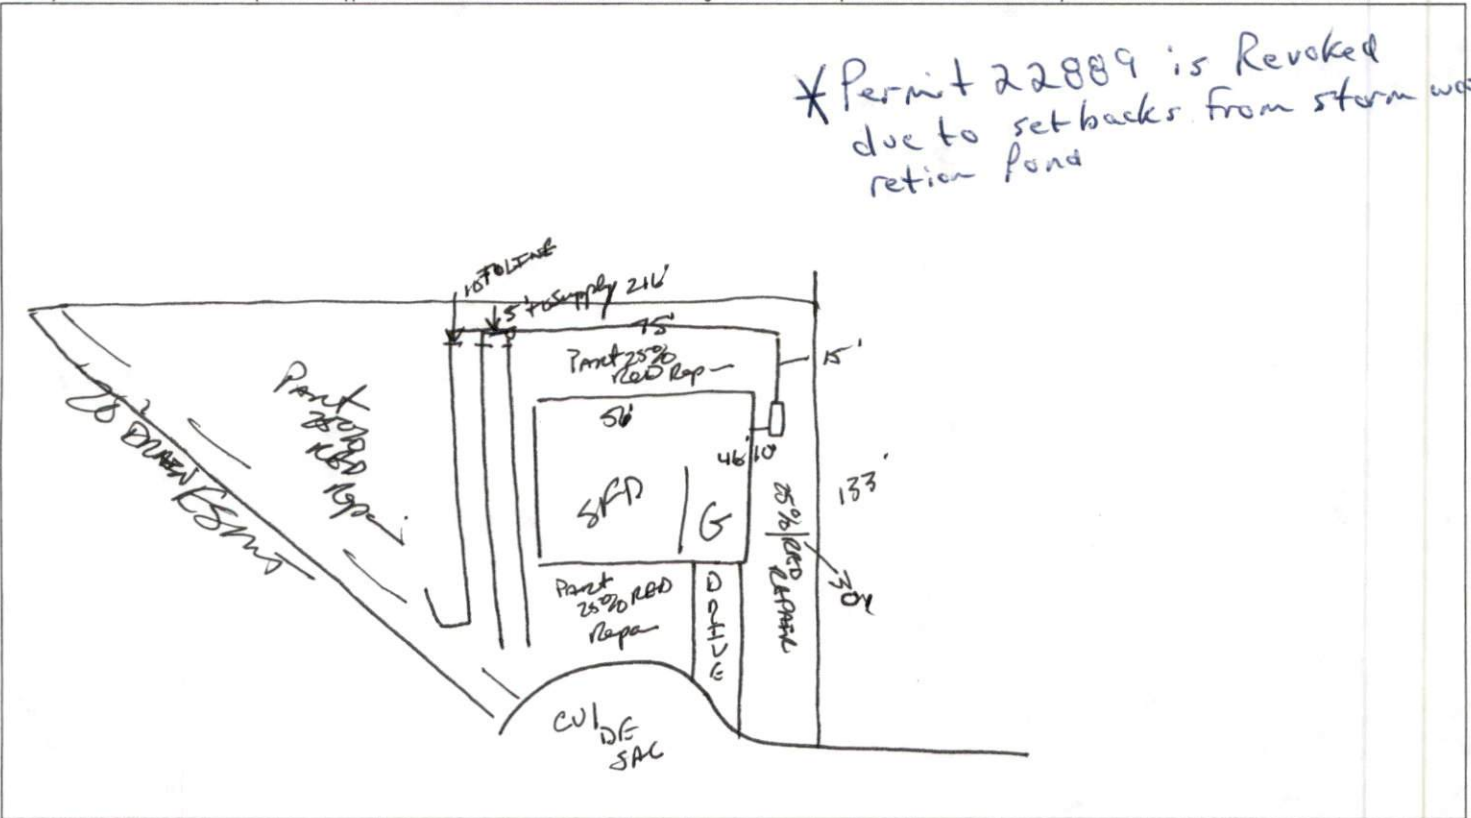 * Permit 22889 is Revoked
due to setbacks from storm wa
retion Pond
10' TO LINE
5' to supply 216'
75'
Part 25%
RED Rep
15'
56'
46' 10'
SFD
G
133'
Part
25%
RED
Repai
20' DRAIN ESMT
25% RED
REPAIR
30'
Part
25% RED
Repa
DRIVE
CUL
DE
SAC